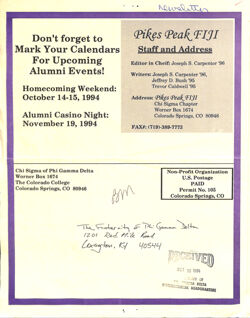 Newsletter
Don't forget to
Mark Your Calendars
For Upcoming
Alumni Events!
Homecoming Weekend:
October 14-15, 1994
Alumni Casino Night:
November 19, 1994
Pikes Peak FIJI
Staff and Address
Editor in Cheif: Joseph S. Carpenter '96,
Writers: Joseph S. Carpenter '96,
Jeffrey D. Bush '95
Trevor Caldwell '95
Address: Pikes Peak FIJI
Chi Sigma Chapter
Worner Box 1674
Colorado Springs, CO 80946
FAX# (719)-389-7772
Chi Sigma of Phi Gamma Delta
Worner Box 1674
The Colorado College
Colorado Springs, CO 80946
Non-Profit Organization
U.S. Postage
PAID
Permit No. 105
Colorado Springs, CO
The Fraternity of Phi Gamma Delta
1201 Red Mile Road
Lexington, KY 40544
RECEIVED
1994
INTERNATIONAL HEADQUARTERS